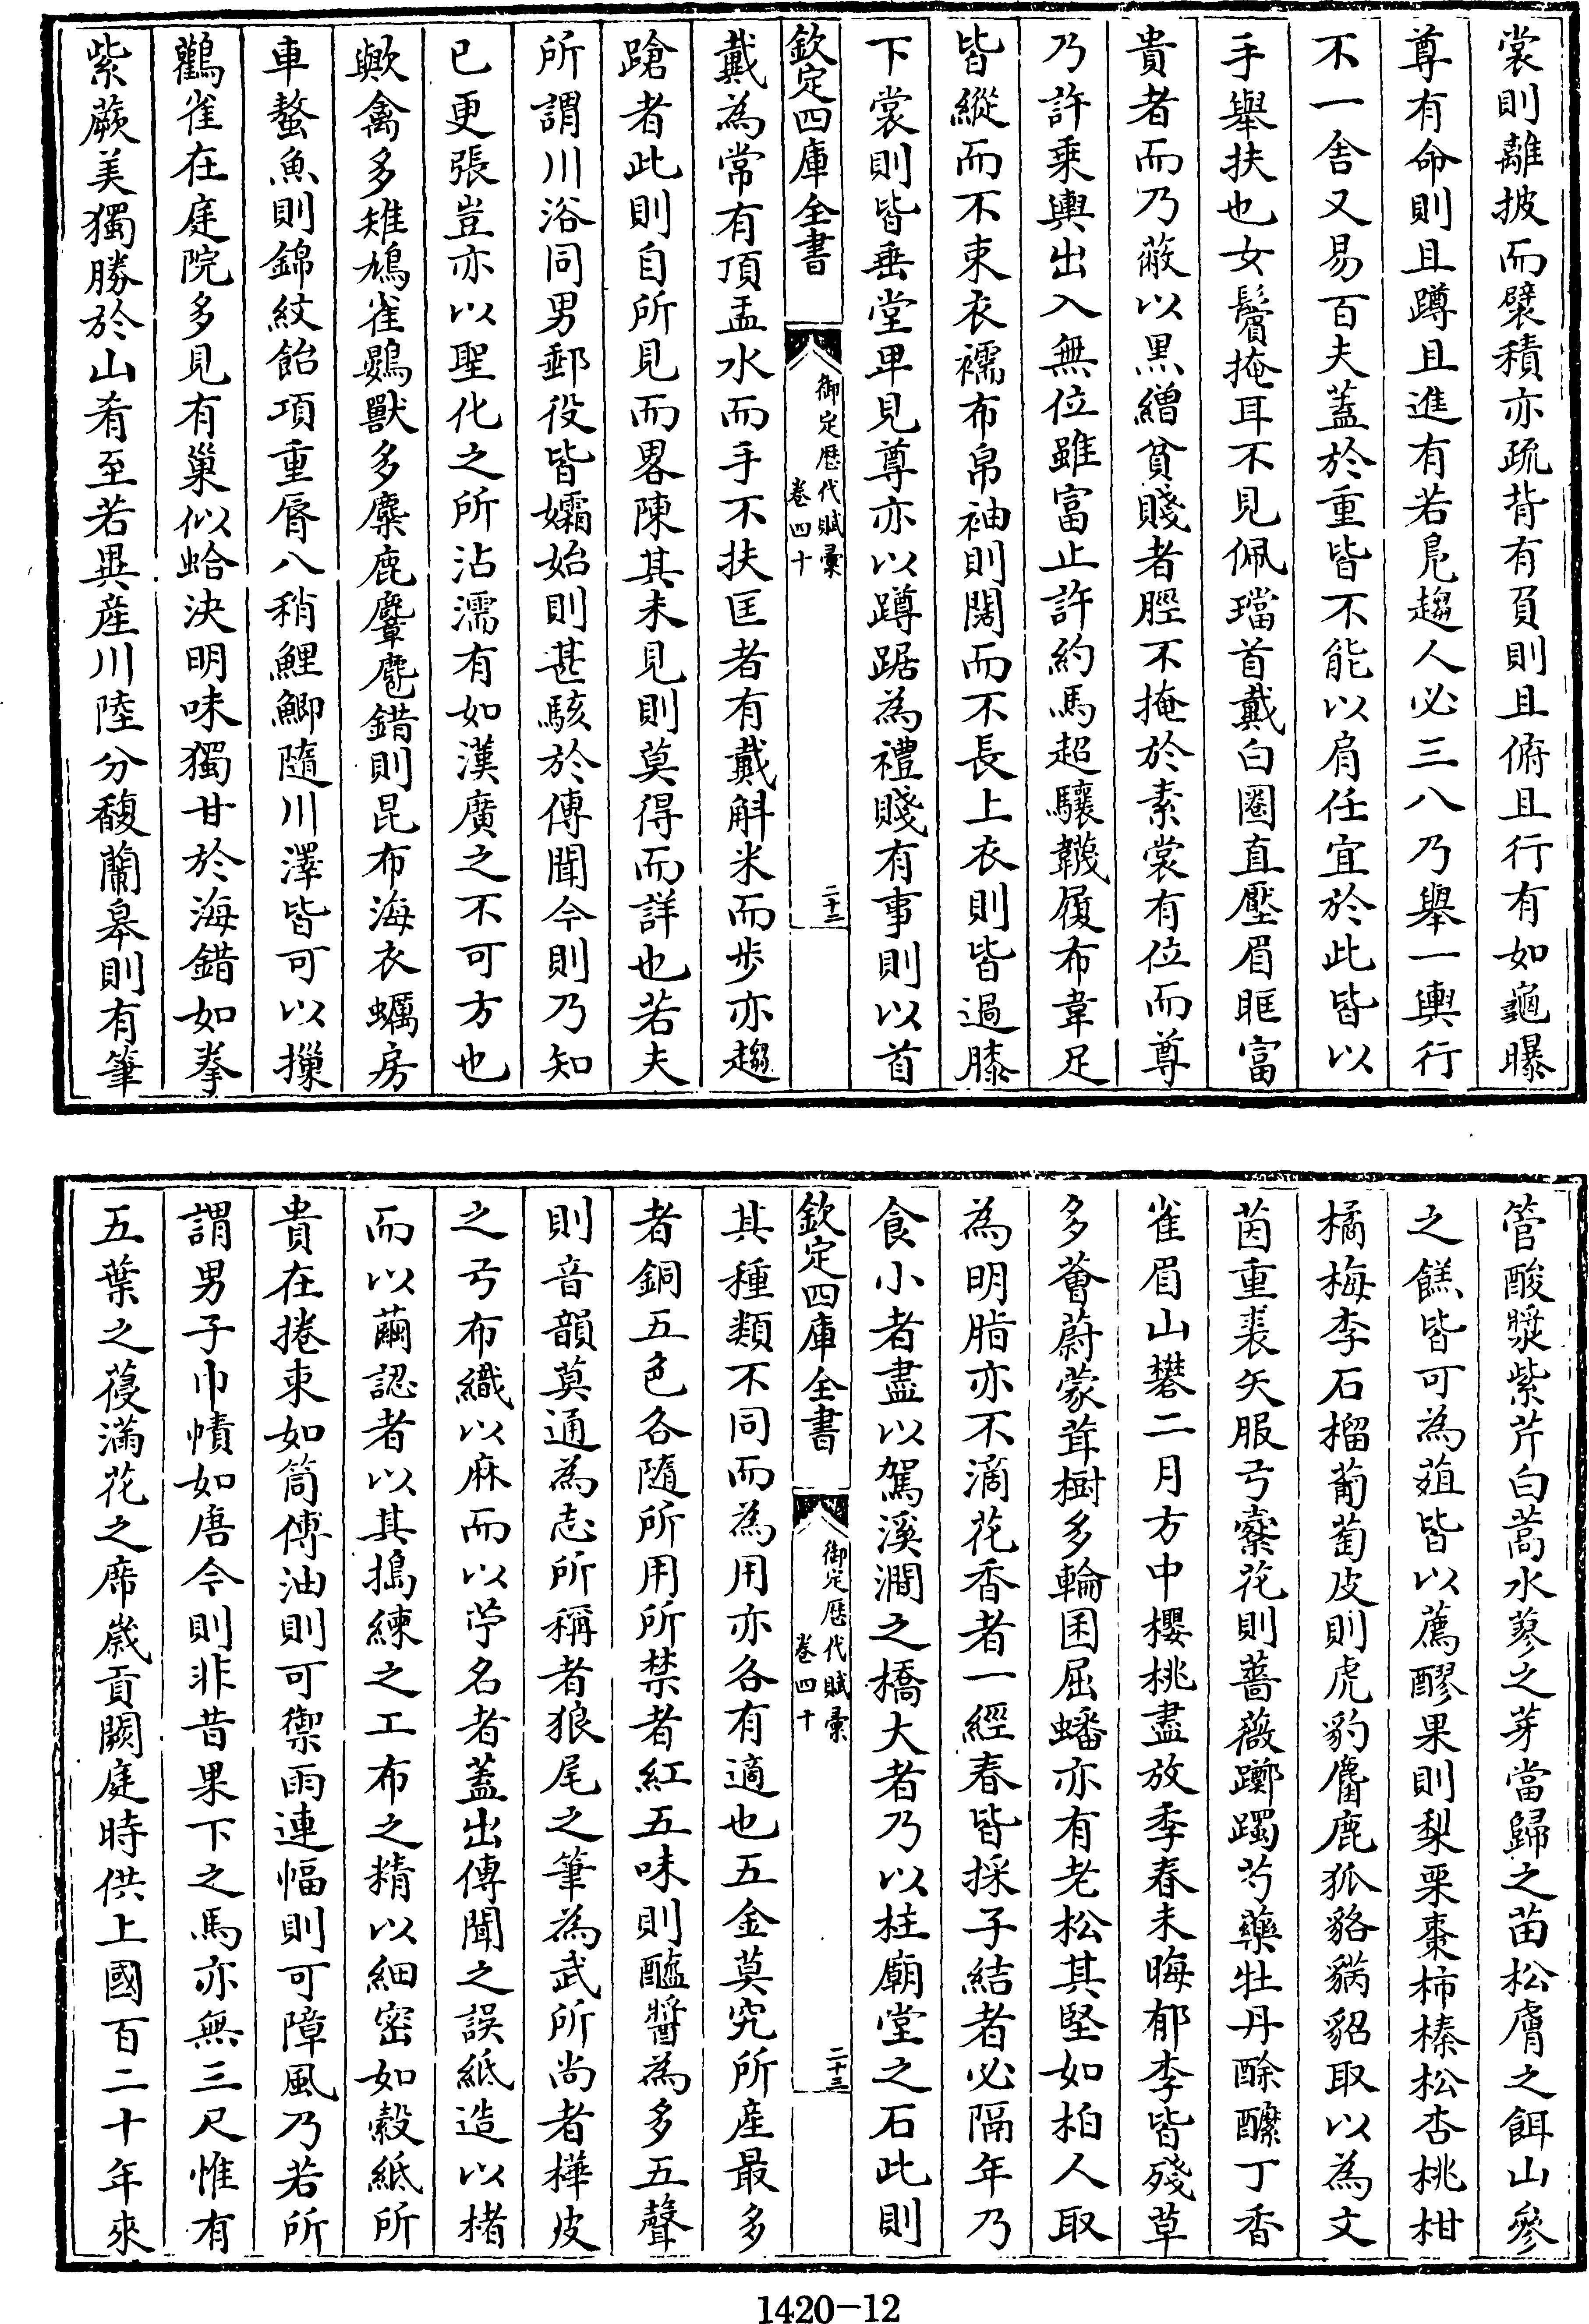 裳則離披而襞積亦疏背有負則且俯且行有如龜曝
尊有命則且蹲且進有若鳧趨人必三八乃舉一輿行
不一舍又易百夫蓋於重皆不能以肩任宜於此皆以
手舉扶也女鬢掩耳不見佩璫首戴白圈直壓眉眶富
貴者而乃蔽以黒繒貧賤者脛不掩於素裳有位而尊
乃許乘輿出入無位雖富止許約馬超驤韈履布韋足
皆縱而不束衣襦布帛袖則闊而不長上衣則皆過膝
下裳則皆垂堂卑見尊亦以蹲踞為禮賤有事則以首
欽定四庫全書
御定歴代賦彙
卷四十
二十二
戴為常有頂盂水而手不扶匡者有戴斛米而步亦趨
蹌者此則自所見而畧陳其未見則莫得而詳也若夫
所謂川浴同男郵役皆孀始則甚駭於傳聞今則乃知
已更張豈亦以聖化之所沾濡有如漢廣之不可方也
歟禽多雉鳩雀鷃獸多麋鹿麞麅錯則昆布海衣蠣房
車螯魚則錦紋飴項重脣八稍鯉鯽隨川澤皆可以摷
鸛雀在庭院多見有巢似蛤決明味獨甘於海錯如拳
紫蕨美獨勝於山肴至若異産川陸分馥蘭皋則有筆
管酸漿紫芹白蒿水蓼之芽當歸之苗松膚之餌山參
之餻皆可為葅皆以薦醪果則梨栗棗柿榛松杏桃柑
橘梅李石榴葡萄皮則虎豹麢鹿狐貉貓貂取以為文
茵重裘矢服弓櫜花則薔薇躑躅芍藥牡丹酴醿丁香
雀眉山礬二月方中櫻桃盡放季春未晦郁李皆殘草
多薈蔚蒙茸樹多輪囷屈蟠亦有老松其堅如柏人取
為明脂亦不滴花香者一經春皆採子結者必隔年乃
食小者盡以駕溪澗之橋大者乃以柱廟堂之石此則
欽定四庫全書
御定歴代賦彙
卷四十
二十三
其種類不同而為用亦各有適也五金莫究所産最多
者銅五色各隨所用所禁者紅五味則醯醬為多五聲
則音韻莫通為志所稱者狼尾之筆為武所尚者樺皮
之弓布織以麻而以苧名者蓋出傳聞之誤紙造以楮
而以繭認者以其搗練之工布之精以細密如縠紙所
貴在捲束如筒傅油則可禦雨連幅則可障風乃若所
謂男子巾幘如唐今則非昔果下之馬亦無三尺惟有
五葉之葠滿花之席歳貢闕庭時供上國百二十年來
1420-12